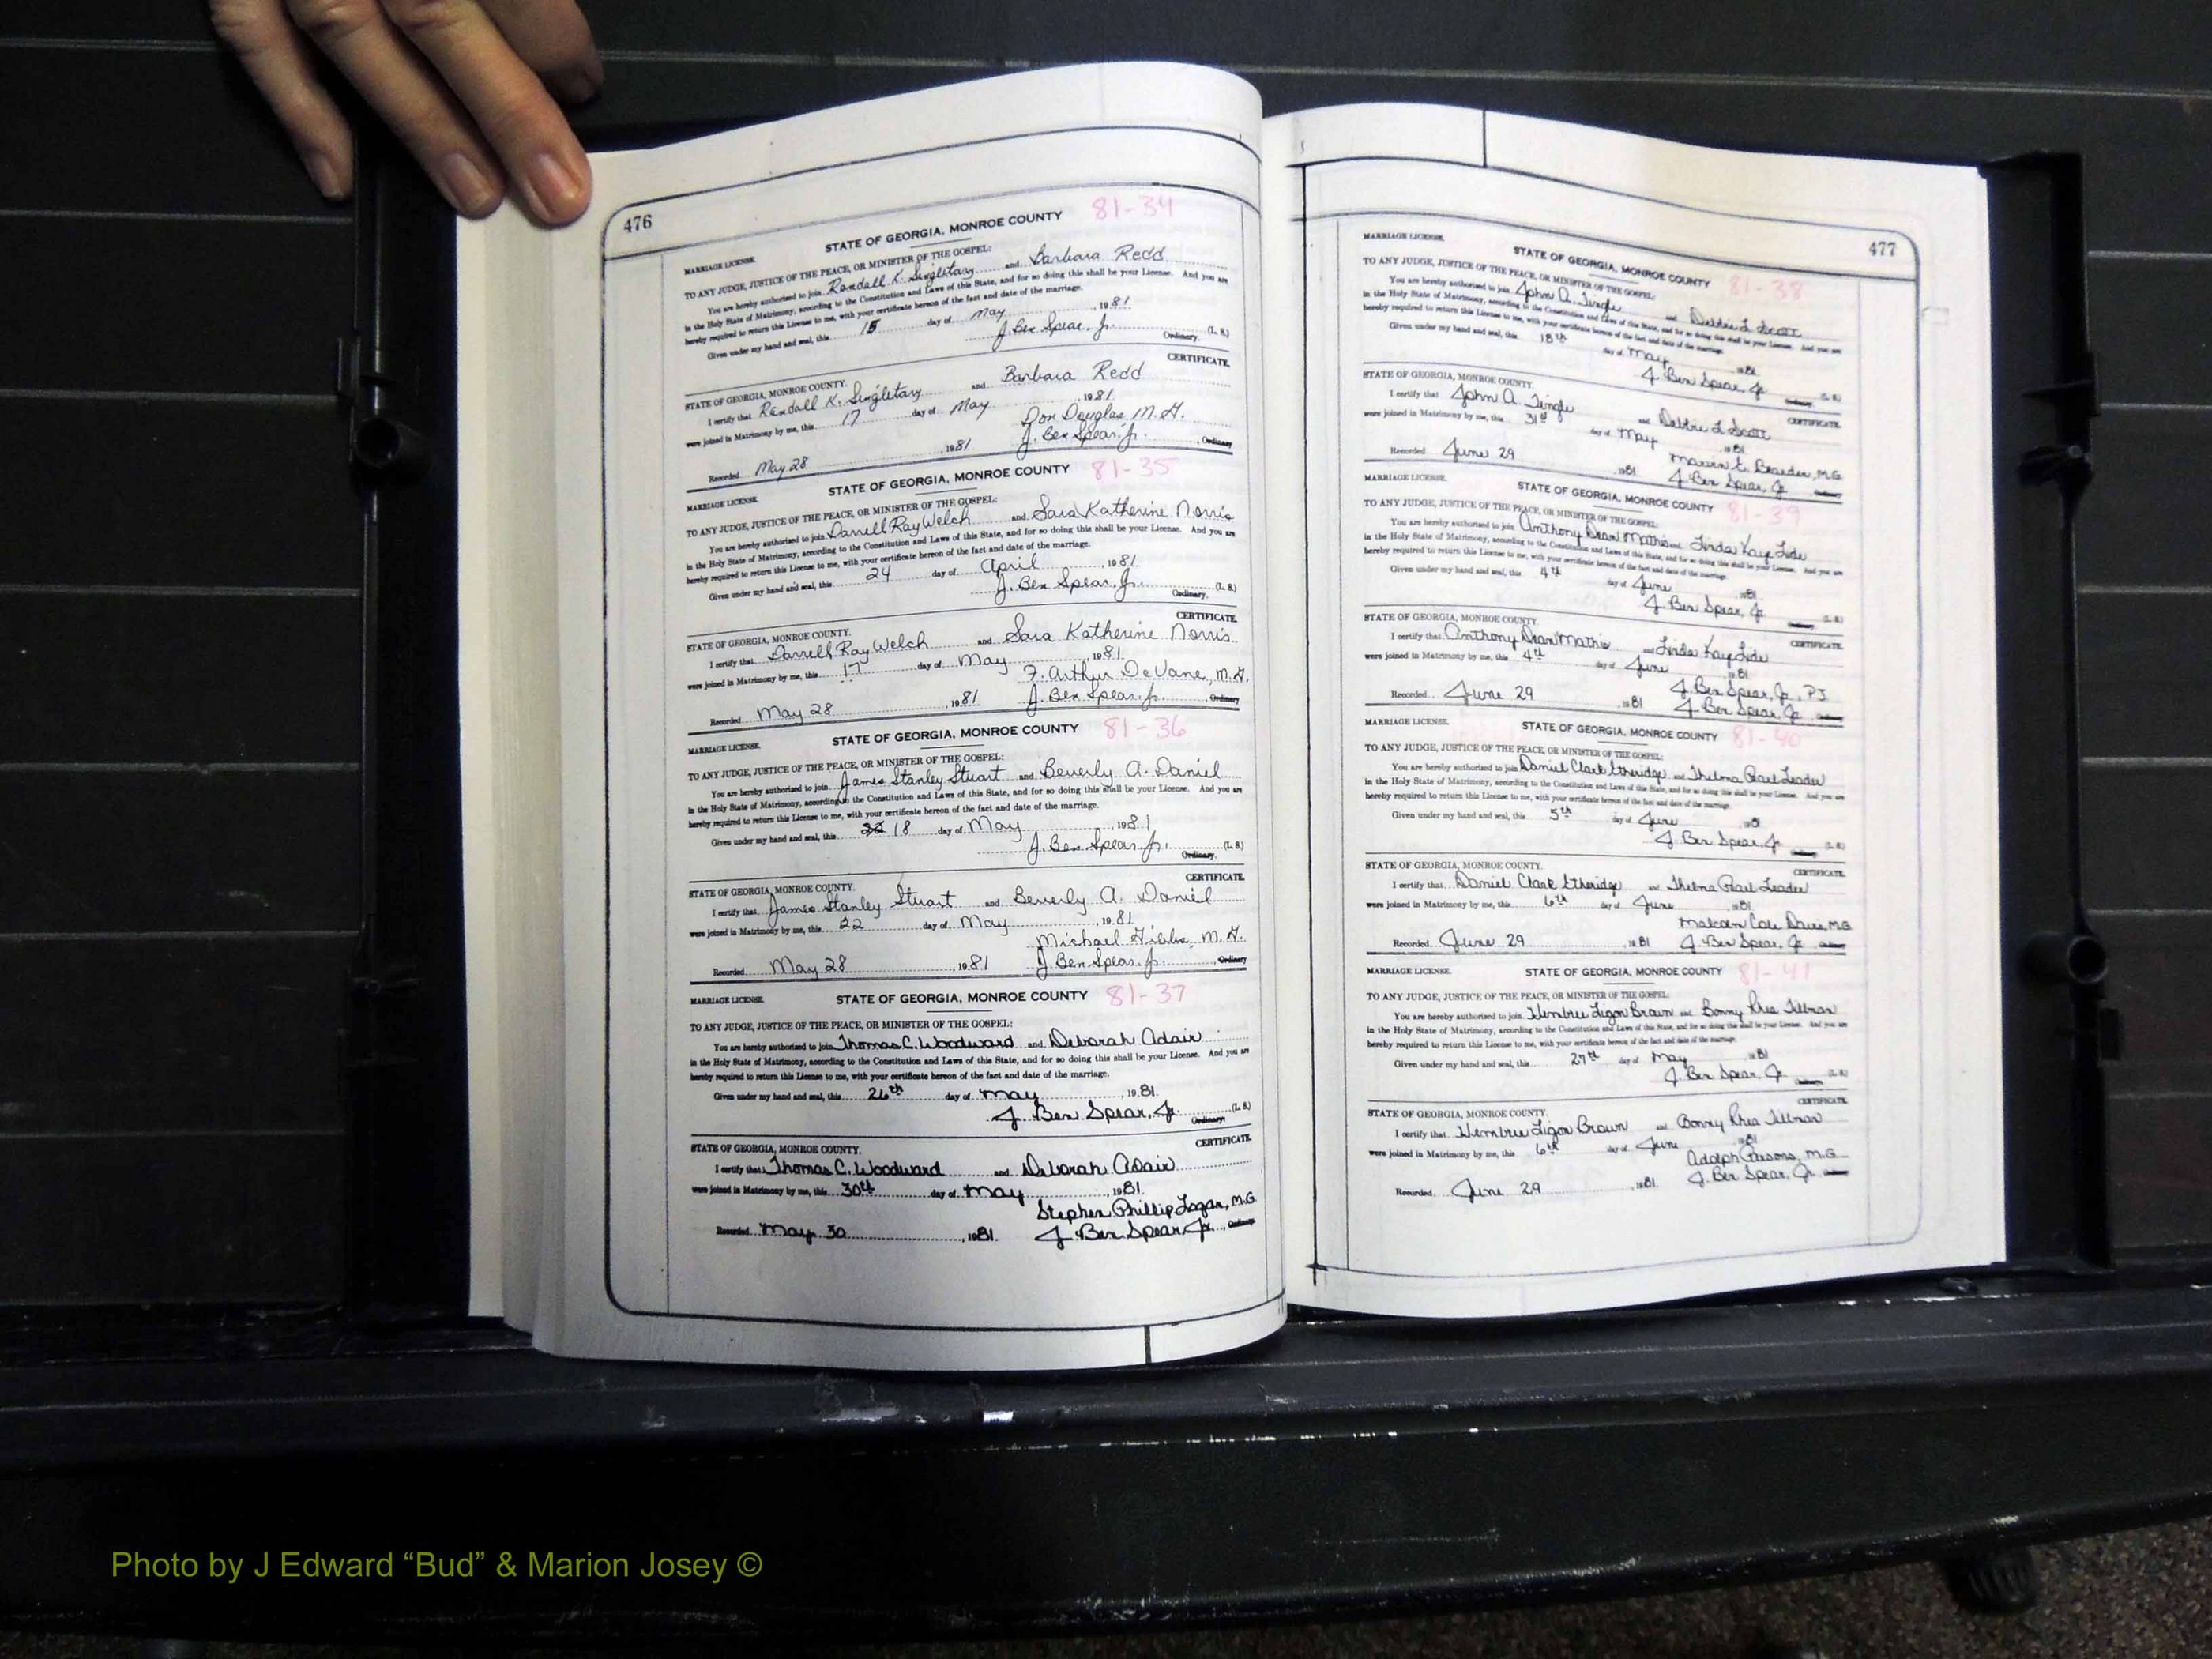 476
STATE OF GEORGIA, MONROE COUNTY 81-34
MARRIAGE LICENSE.
TO ANY JUDGE, JUSTICE OF THE PEACE, OR MINISTER OF THE GOSPEL:
You are hereby authorized to join Randall K. Singletary and Barbara Redd
in the Holy State of Matrimony, according to the Constitution and Laws of this State, and for so doing this shall be your License. And you are
hereby required to return this License to me, with your certificate hereon of the fact and date of the marriage.
Given under my hand and seal, this 15 day of May, 1981
J. Ben Spear, Jr. (L. S.)
Ordinary.
CERTIFICATE.
STATE OF GEORGIA, MONROE COUNTY.
I certify that Randall K. Singletary and Barbara Redd
were joined in Matrimony by me, this 17 day of May, 1981
Don Douglas M.G.
Recorded May 28, 1981 J. Ben Spear, Jr., Ordinary
STATE OF GEORGIA, MONROE COUNTY 81-35
MARRIAGE LICENSE.
TO ANY JUDGE, JUSTICE OF THE PEACE, OR MINISTER OF THE GOSPEL:
You are hereby authorized to join Darrell Ray Welch and Sara Katherine Norris
in the Holy State of Matrimony, according to the Constitution and Laws of this State, and for so doing this shall be your License. And you are
hereby required to return this License to me, with your certificate hereon of the fact and date of the marriage.
Given under my hand and seal, this 24 day of April, 1981
J. Ben Spear, Jr. (L. S.)
Ordinary.
CERTIFICATE.
STATE OF GEORGIA, MONROE COUNTY.
I certify that Darrell Ray Welch and Sara Katherine Norris
were joined in Matrimony by me, this 17 day of May, 1981
F. Arthur DeVane, M.G.
Recorded May 28, 1981 J. Ben Spear, Jr. Ordinary
STATE OF GEORGIA, MONROE COUNTY 81-36
MARRIAGE LICENSE.
TO ANY JUDGE, JUSTICE OF THE PEACE, OR MINISTER OF THE GOSPEL:
You are hereby authorized to join James Stanley Stuart and Beverly A. Daniel
in the Holy State of Matrimony, according to the Constitution and Laws of this State, and for so doing this shall be your License. And you are
hereby required to return this License to me, with your certificate hereon of the fact and date of the marriage.
Given under my hand and seal, this 22 18 day of May, 1981
J. Ben Spear, Jr. (L. S.)
Ordinary.
CERTIFICATE.
STATE OF GEORGIA, MONROE COUNTY.
I certify that James Stanley Stuart and Beverly A. Daniel
were joined in Matrimony by me, this 22 day of May, 1981
Michael M.G.
Recorded May 28, 1981 J. Ben Spear, Jr., Ordinary
MARRIAGE LICENSE. STATE OF GEORGIA, MONROE COUNTY 81-37
TO ANY JUDGE, JUSTICE OF THE PEACE, OR MINISTER OF THE GOSPEL:
You are hereby authorized to join Thomas C. Woodward and Deborah Adair
in the Holy State of Matrimony, according to the Constitution and Laws of this State, and for so doing this shall be your License. And you are
hereby required to return this License to me, with your certificate hereon of the fact and date of the marriage.
Given under my hand and seal, this 26th day of May, 1981
J. Ben Spear, Jr. (L. S.)
Ordinary.
CERTIFICATE.
STATE OF GEORGIA, MONROE COUNTY.
I certify that Thomas C. Woodward and Deborah Adair
were joined in Matrimony by me, this 30th day of May, 1981
Stephen Phillip Logan, M.G.
Recorded May 30, 1981 J. Ben Spear, Jr., Ordinary
477
MARRIAGE LICENSE. STATE OF GEORGIA, MONROE COUNTY 81-38
TO ANY JUDGE, JUSTICE OF THE PEACE, OR MINISTER OF THE GOSPEL:
You are hereby authorized to join John A. Tingle and Debbie L. Scott
in the Holy State of Matrimony, according to the Constitution and Laws of this State, and for so doing this shall be your License. And you are
hereby required to return this License to me, with your certificate hereon of the fact and date of the marriage.
Given under my hand and seal, this 18th day of May 1981
J. Ben Spear, Jr. (L. S.)
Ordinary.
STATE OF GEORGIA, MONROE COUNTY. CERTIFICATE.
I certify that John A. Tingle and Debbie L. Scott
were joined in Matrimony by me, this 31st day of May 1981
M.G.
Recorded June 29, 1981 J. Ben Spear, Jr. Ordinary
MARRIAGE LICENSE. STATE OF GEORGIA, MONROE COUNTY 81-39
TO ANY JUDGE, JUSTICE OF THE PEACE, OR MINISTER OF THE GOSPEL:
You are hereby authorized to join Anthony Dean Mathis and Linda Kay
in the Holy State of Matrimony, according to the Constitution and Laws of this State, and for so doing this shall be your License. And you are
hereby required to return this License to me, with your certificate hereon of the fact and date of the marriage.
Given under my hand and seal, this 4th day of June 1981
J. Ben Spear, Jr. (L. S.)
Ordinary.
STATE OF GEORGIA, MONROE COUNTY. CERTIFICATE.
I certify that Anthony Dean Mathis and Linda Kay
were joined in Matrimony by me, this 4th day of June 1981
J. Ben Spear, Jr., P.J.
Recorded June 29, 1981 J. Ben Spear, Jr. Ordinary
MARRIAGE LICENSE. STATE OF GEORGIA, MONROE COUNTY 81-40
TO ANY JUDGE, JUSTICE OF THE PEACE, OR MINISTER OF THE GOSPEL:
You are hereby authorized to join Daniel Clark Etheridge and Thelma Pearl Leader
in the Holy State of Matrimony, according to the Constitution and Laws of this State, and for so doing this shall be your License. And you are
hereby required to return this License to me, with your certificate hereon of the fact and date of the marriage.
Given under my hand and seal, this 5th day of June 1981
J. Ben Spear, Jr. (L. S.)
Ordinary.
STATE OF GEORGIA, MONROE COUNTY. CERTIFICATE.
I certify that Daniel Clark Etheridge and Thelma Pearl Leader
were joined in Matrimony by me, this 6th day of June 1981
Malcolm Cole Davis, M.G.
Recorded June 29, 1981 J. Ben Spear, Jr. Ordinary
MARRIAGE LICENSE. STATE OF GEORGIA, MONROE COUNTY 81-41
TO ANY JUDGE, JUSTICE OF THE PEACE, OR MINISTER OF THE GOSPEL:
You are hereby authorized to join Hembree Ligon Brown and Bonny Rhea Tillman
in the Holy State of Matrimony, according to the Constitution and Laws of this State, and for so doing this shall be your License. And you are
hereby required to return this License to me, with your certificate hereon of the fact and date of the marriage.
Given under my hand and seal, this 27th day of May 1981
J. Ben Spear, Jr. (L. S.)
Ordinary.
CERTIFICATE.
STATE OF GEORGIA, MONROE COUNTY.
I certify that Hembree Ligon Brown and Bonny Rhea Tillman
were joined in Matrimony by me, this 6th day of June 1981
Adolph Parsons, M.G.
Recorded June 29, 1981 J. Ben Spear, Jr. Ordinary
Photo by J Edward “Bud” & Marion Josey ©